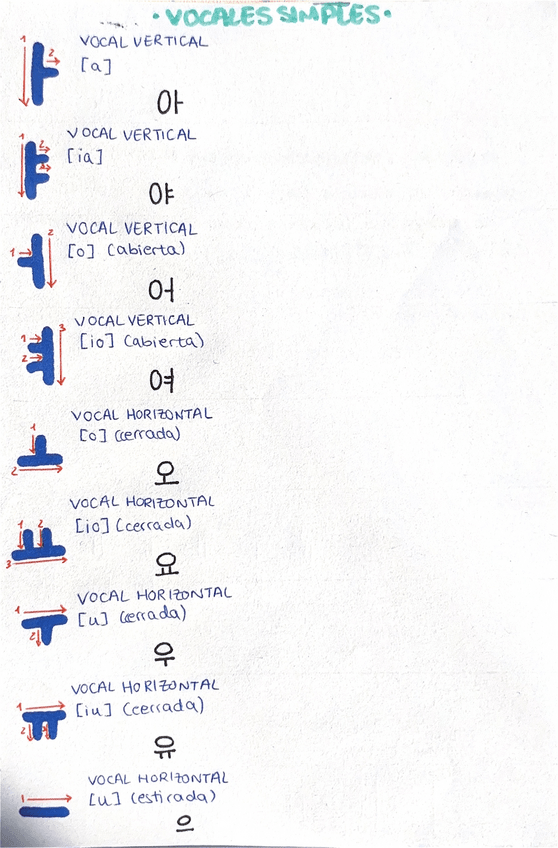 • VOCALES SIMPLES •
VOCAL VERTICAL
[a]
아
VOCAL VERTICAL
[ia]
야
VOCAL VERTICAL
[o] (abierta)
어
VOCAL VERTICAL
[io] (abierta)
여
VOCAL HORIZONTAL
[o] (cerrada)
오
VOCAL HORIZONTAL
[io] (cerrada)
요
VOCAL HORIZONTAL
[u] (cerrada)
우
VOCAL HORIZONTAL
[iu] (cerrada)
유
VOCAL HORIZONTAL
[u] (estirada)
으